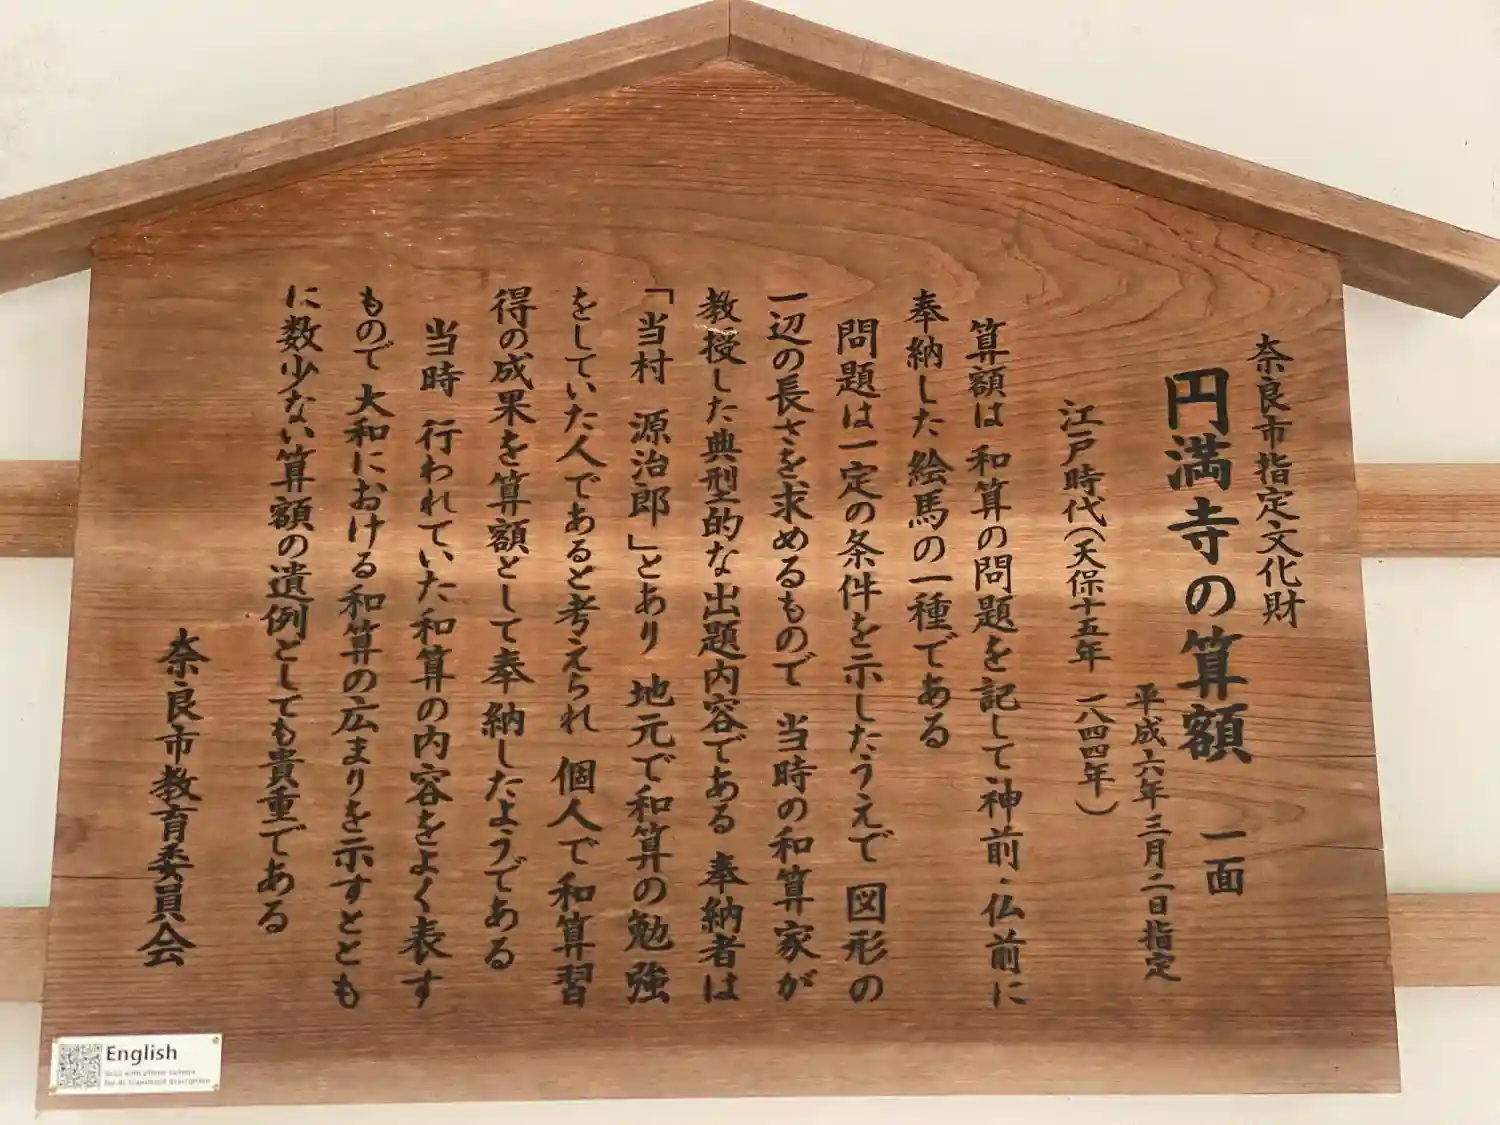 奈良市指定文化財
円満寺の算額 一面
平成六年三月二日指定
江戸時代(天保十五年 一八四四年)
算額は 和算の問題を記して神前・仏前に
奉納した絵馬の一種である
問題は一定の条件を示したうえで 図形の
一辺の長さを求めるもので 当時の和算家が
教授した典型的な出題内容である 奉納者は
「当村 源治郎」とあり 地元で和算の勉強
をしていた人であると考えられ 個人で和算習
得の成果を算額として奉納したようである
当時 行われていた和算の内容をよく表す
もので 大和における和算の広まりを示すととも
に数少ない算額の遺例としても貴重である
奈良市教育委員会
English
Scan with phone camera
for AI translated description